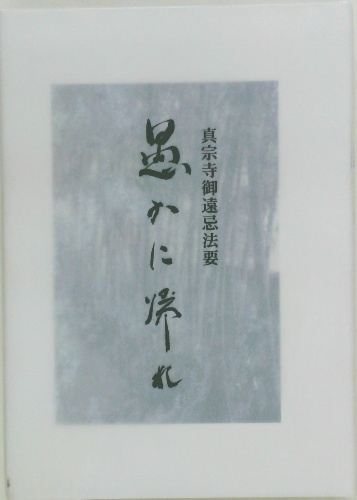 真宗寺御遠忌法要
愚かに帰れ